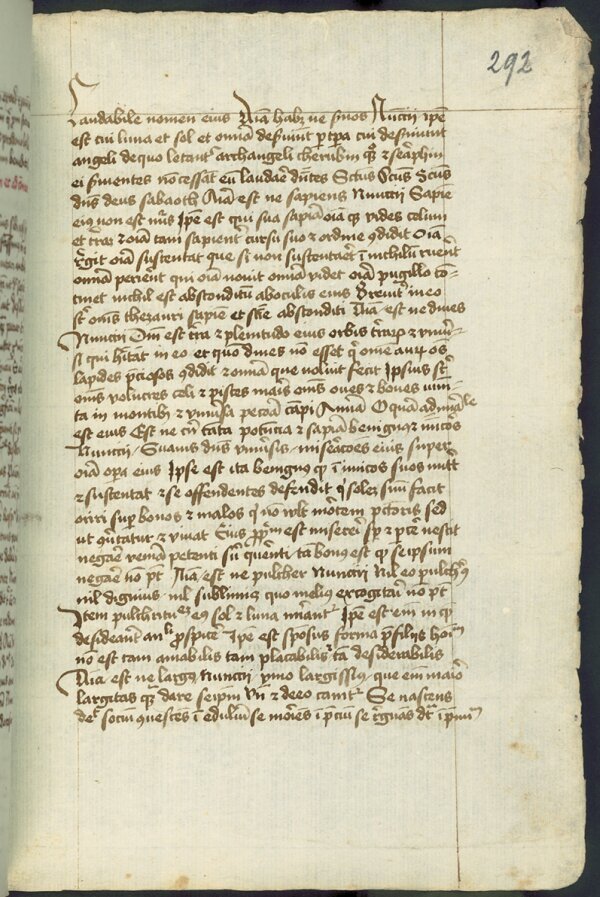 292
Laudabile nomen eius Aīa habz ne suos Nuncii ipē
est cui luna et sol et omīa deseruiūt cui deseruiunt
angeli de quo letant' archangeli cherubin qz & seraphin
ei suientes nō cessāt eū laudare dn̄tes Sctus scus scus
dn̄s deus sabaoth Aīa est ne sapiens Nuncii Sapiē
eius non est nūs Ipē est qui sua sapiā oīa q vides celum
et trā & oīa tam sapient' cursu suo & ordine ꝯdidit Oīa
regit oīa sustentat que si non sustentaret ī nichilū ruerēt
omīa perirent qui oīa nouit omīa videt oīa pugillo cō-
tinet nichil est absconditū ab oculis eius Breuit' in eo
st' omēs thezauri sapie et scīe absconditi Aīa est ne diues
Nuncii Dnī est trā & plenitudo eius orbis trarꝝ & vniu-
si qui hitāt in eo et quō diues nō esset q̄ omē auꝝ oēs
lapides pciosos ꝯdidit & omīa que voluit fecit Ipsius st'
omēs volucres celi & pisces maris omēs oues & boues
ta in montibꝫ & vniusa pecora campi Aīa O quā admirabile
est eius Est ne cū tāta potencia & sapiā benignus
Nuncii Suauis dn̄s vniusis miseracōes eius super
oīa opa eius Ipse est ita benignꝰ qp ī inicos suos
& sustentat & se offendentes defendit q solem suū facit
oriri sup bonos & malos q nō vult mortem pctoris sed
ut ꝯutatur & viuat Eius est misereri sp & pcere nescit
negare petenti ta bonꝰ est qp seipsum
negare nō pt Aīa est ne pulcher Nuncii Nil eo pulchrius
nil dignius nil sublimius quo melius excogitari nō pt
Item pulchritudinē eius sol & luna mirant' Ipē est eim in quē
desiderāt angeli prospicere Ipē est sponsus forma p filiis hoīm
nō est tam amabilis tam placabilis tā desiderabilis
Aīa est ne largus Nuncii ymo largissimus que eim maior
largitas qz dare seipm Vn̄ & de eo canit' Se nascens
dedit sociū ꝯuescens ī edulium se moriens ī pcium se regnans dat ī pmium